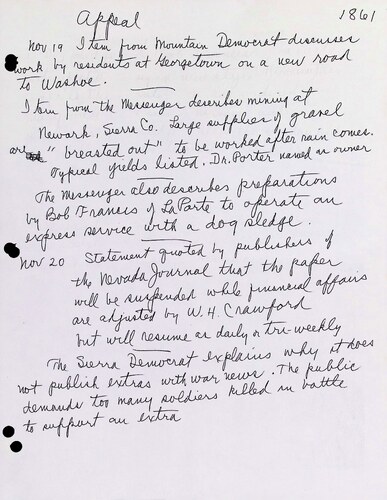 Appeal
1861
Nov 19 Item from Mountain Democrat discusses
work by residents at Georgetown on a new road
to Washoe.
Item from the Messenger describes mining at
Newark, Sierra Co. Large supplies of gravel
are "breasted out" to be worked after rain comes.
Typical yields listed. Dr. Porter named as owner
The Messenger also describes preparations
by Bob Francis of LaPorte to operate an
express service with a dog sledge.
Nov 20 Statement quoted by publishers of
the Nevada Journal that the paper
will be suspended while financial affairs
are adjusted by W.H. Crawford
but will resume as daily or tri-weekly
The Sierra Democrat explains why it does
not publish extras with war news. The public
demands too many soldiers killed in battle
to support an extra